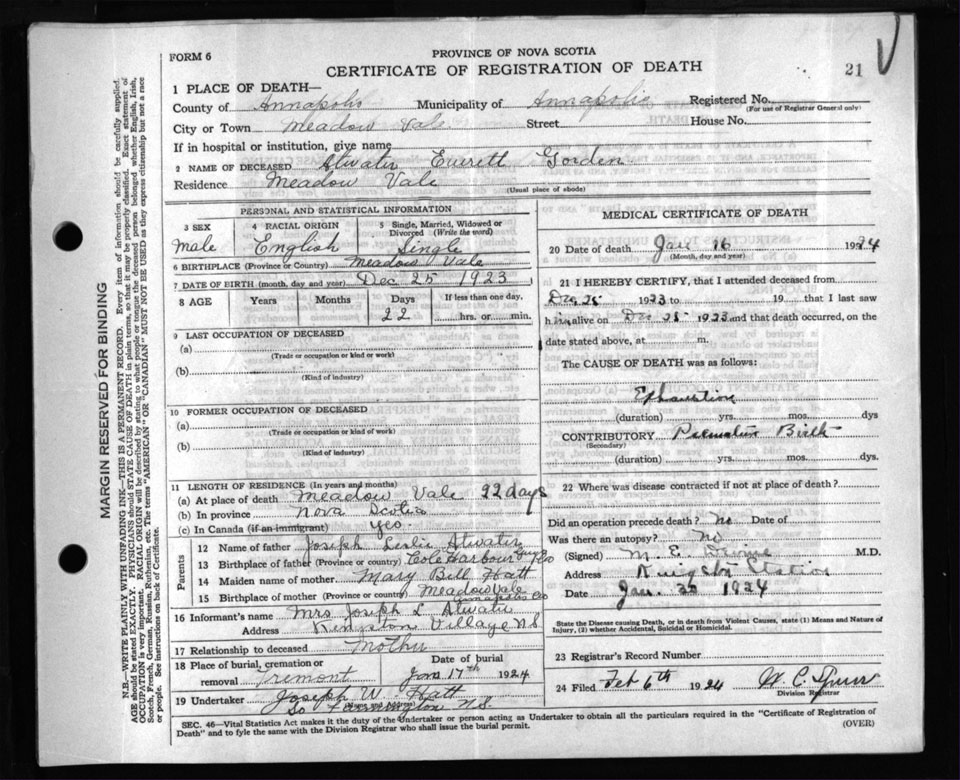 FORM 6
PROVINCE OF NOVA SCOTIA
CERTIFICATE OF REGISTRATION OF DEATH
21
1 PLACE OF DEATH—
County of Annapolis Municipality of Annapolis Registered No.
(For use of Registrar General only)
City or Town Meadow Vale Street House No.
If in hospital or institution, give name
2 NAME OF DECEASED Atwater Everett Gorden
Residence Meadow Vale
(Usual place of abode)
PERSONAL AND STATISTICAL INFORMATION
3 SEX 4 RACIAL ORIGIN 5 Single, Married, Widowed or Divorced (Write the word)
Male English Single
6 BIRTHPLACE (Province or Country) Meadow Vale
7 DATE OF BIRTH (month, day and year) Dec 25 1923
8 AGE Years Months Days If less than one day,
22 hrs. or min.
9 LAST OCCUPATION OF DECEASED
(a)
(Trade or occupation or kind or work)
(b)
(Kind of industry)
10 FORMER OCCUPATION OF DECEASED
(a)
(Trade or occupation or kind of work)
(b)
(Kind of industry)
11 LENGTH OF RESIDENCE (In years and months)
(a) At place of death Meadow Vale 22 days
(b) In province Nova Scotia
(c) In Canada (if an immigrant) yes
Parents
12 Name of father Joseph Leslie Atwater
13 Birthplace of father (Province or country) Cole Harbour Guys Co
14 Maiden name of mother Mary Bell Hatt
15 Birthplace of mother (Province or country) Meadow Vale Annapolis Co
16 Informant's name Mrs Joseph L Atwater
Address Kingston Village N S
17 Relationship to deceased Mother
18 Place of burial, cremation or removal Tremont Date of burial Jan 17th 1924
19 Undertaker Joseph W. Hatt
So Farmington N.S.
MEDICAL CERTIFICATE OF DEATH
20 Date of death Jan 16 1924
(Month, day and year)
21 I HEREBY CERTIFY, that I attended deceased from
Dec 25 1923 to 19 that I last saw
him alive on Dec 25 1923 and that death occurred, on
date stated above, at m.
The CAUSE OF DEATH was as follows:
Exhaustion
(duration) yrs. mos. dys
CONTRIBUTORY Premature Birth
(Secondary)
(duration) yrs. mos. dys.
22 Where was disease contracted if not at place of death?
Did an operation precede death? No Date of
Was there an autopsy? No
(Signed) M. E. M.D.
Address Kingston Station
Date Jan. 1924
State the Disease causing Death, or in death from Violent Causes, state (1) Means and Nature of Injury, (2) whether Accidental, Suicidal or Homicidal.
23 Registrar's Record Number
24 Filed Feb 6th 1924 W. C. Spurr
Division Registrar
SEC. 46—Vital Statistics Act makes it the duty of the Undertaker or person acting as Undertaker to obtain all the particulars required in the "Certificate of Registration of
Death" and to fyle the same with the Division Registrar who shall issue the burial permit.
(OVER)
MARGIN RESERVED FOR BINDING
N.B.—WRITE PLAINLY WITH UNFADING INK—THIS IS A PERMANENT RECORD. Every item of information should be carefully supplied.
AGE should be stated EXACTLY. PHYSICIANS should STATE CAUSE OF DEATH in plain terms, so that it may be properly classified. Exact statement of
OCCUPATION is very important. RACIAL ORIGIN will be described by stating to what people or tongue the deceased person belonged whether English, Irish,
Scotch, French, German, Russian, Ruthenian, etc. The terms "AMERICAN" OR "CANADIAN" MUST NOT BE USED as they express citizenship but not a race
or people. See instructions on back of Certificate.